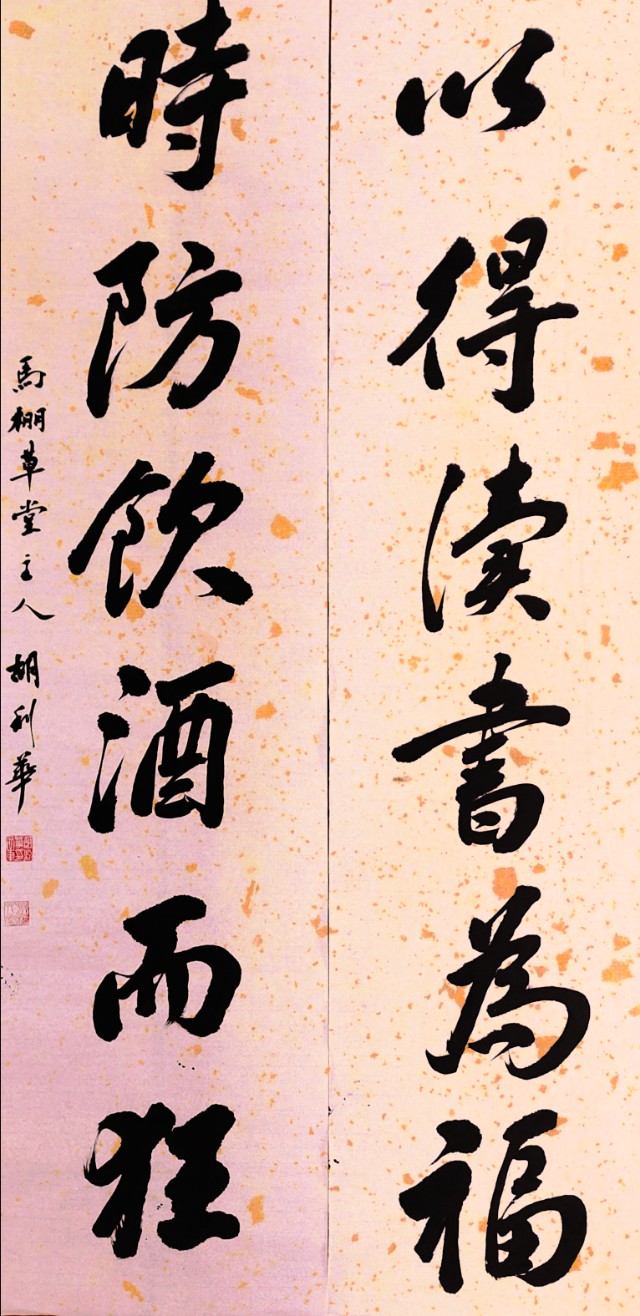 以得读書為福
時防飲酒而狂
馬棚草堂主人胡利華